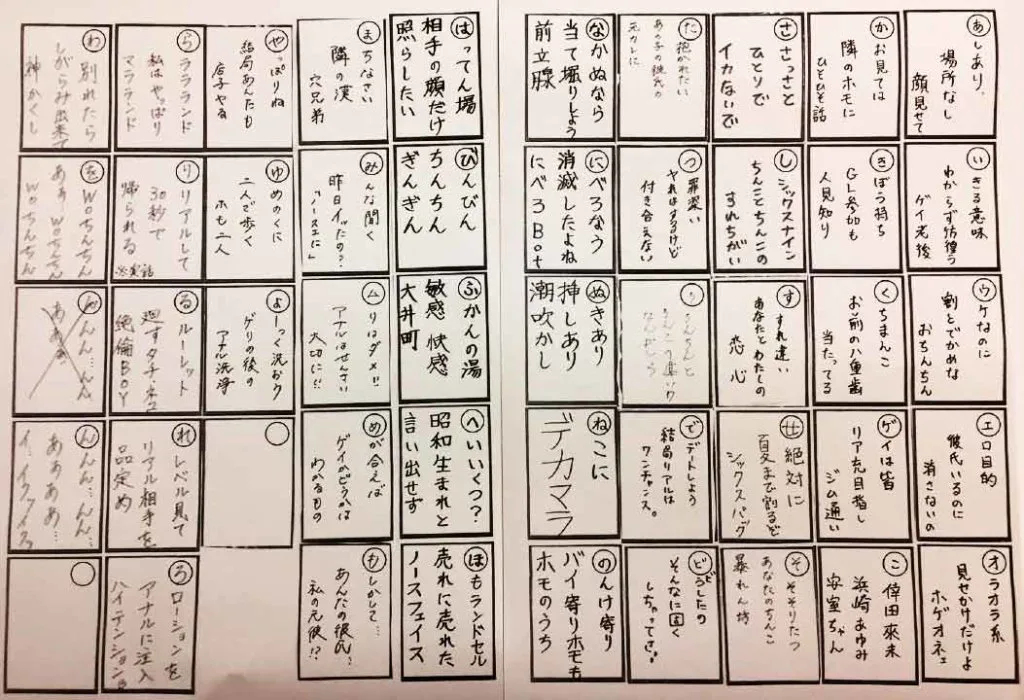 あしあり。
場所なし
顔見せて
いきる意味
わからず彷徨う
ゲイ老後
ウケなのに
割とでかめな
おちんちん
エロ目的
彼氏いるのに
消さないの
オラオラ系
見せかけだけよ
ホゲオネエ
かお見ては
隣のホモに
ひそひそ話
きぼう持ち
GL参加も
人見知り
くちまんこ
お前の八重歯
当たってる
ゲイは皆
リア充目指し
ジム通い
こ
倖田來未
浜崎あゆみ
安室ちゃん
ささっさと
ひとりで
イカないで
シックスナイン
ちんことちんこの
すれちがい
すれ違い
あなたとわたしの
恋心
せ
絶対に
夏まで割るど
シックスパック
そそりたつ
あなたのちんこ
暴れん坊
た抱かれたい
あの子の彼氏の
元カレに
つ
罪深い
ヤれはするけど
付き合えない
でデートしよう
結局リアルは
ワンチャンス。
どうしたの
そんなに固く
しちゃってさ。
なかぬなら
当て堀りしよう
前立腺
にべろなう
消滅したよね
にべろBot
ぬきあり
挿しあり
潮吹かし
ねこに
デカマラ
のんけ寄り
バイ寄りホモも
ホモのうち
はってん場
相手の顔だけ
照らしたい
びんびん
ちんちん
ぎんぎん
ふかんの湯
敏感 快感
大井町
へいいくつ?
昭和生まれと
言い出せず
ほもランドセル
売れに売れた
ノースフェイス
まちなさい
隣の漢
穴兄弟
みんな聞く
昨日イッたの?
「ノースエに」
ムリはダメ!!
アナルはせんさい
大切に!!
めが合えば
ゲイかどうかは
わかるもの
もしかして…
あんたの彼氏…
私の元彼!?
やっぱりね
結局あんたも
店子やる
ゆめのくに
二人で歩く
ホモ二人
よーっく洗おう
ゲリの後の
アナル洗浄
らララランド
私はやっぱり
マラランド
りリアルして
30秒で
帰られる
※実話
るルーレット
廻すタチ・ネコ
絶倫BOY
れレベル見て
リアル相手を
品定め
ろローションを
アナルに注入
ハイテンション
わ
別れたら
しがらみ出来て
神かくし
をWoちんちん
あぁWoちんちん
Woちんちん
んんん…んん
あああ
んんん…んん…
あああああ…